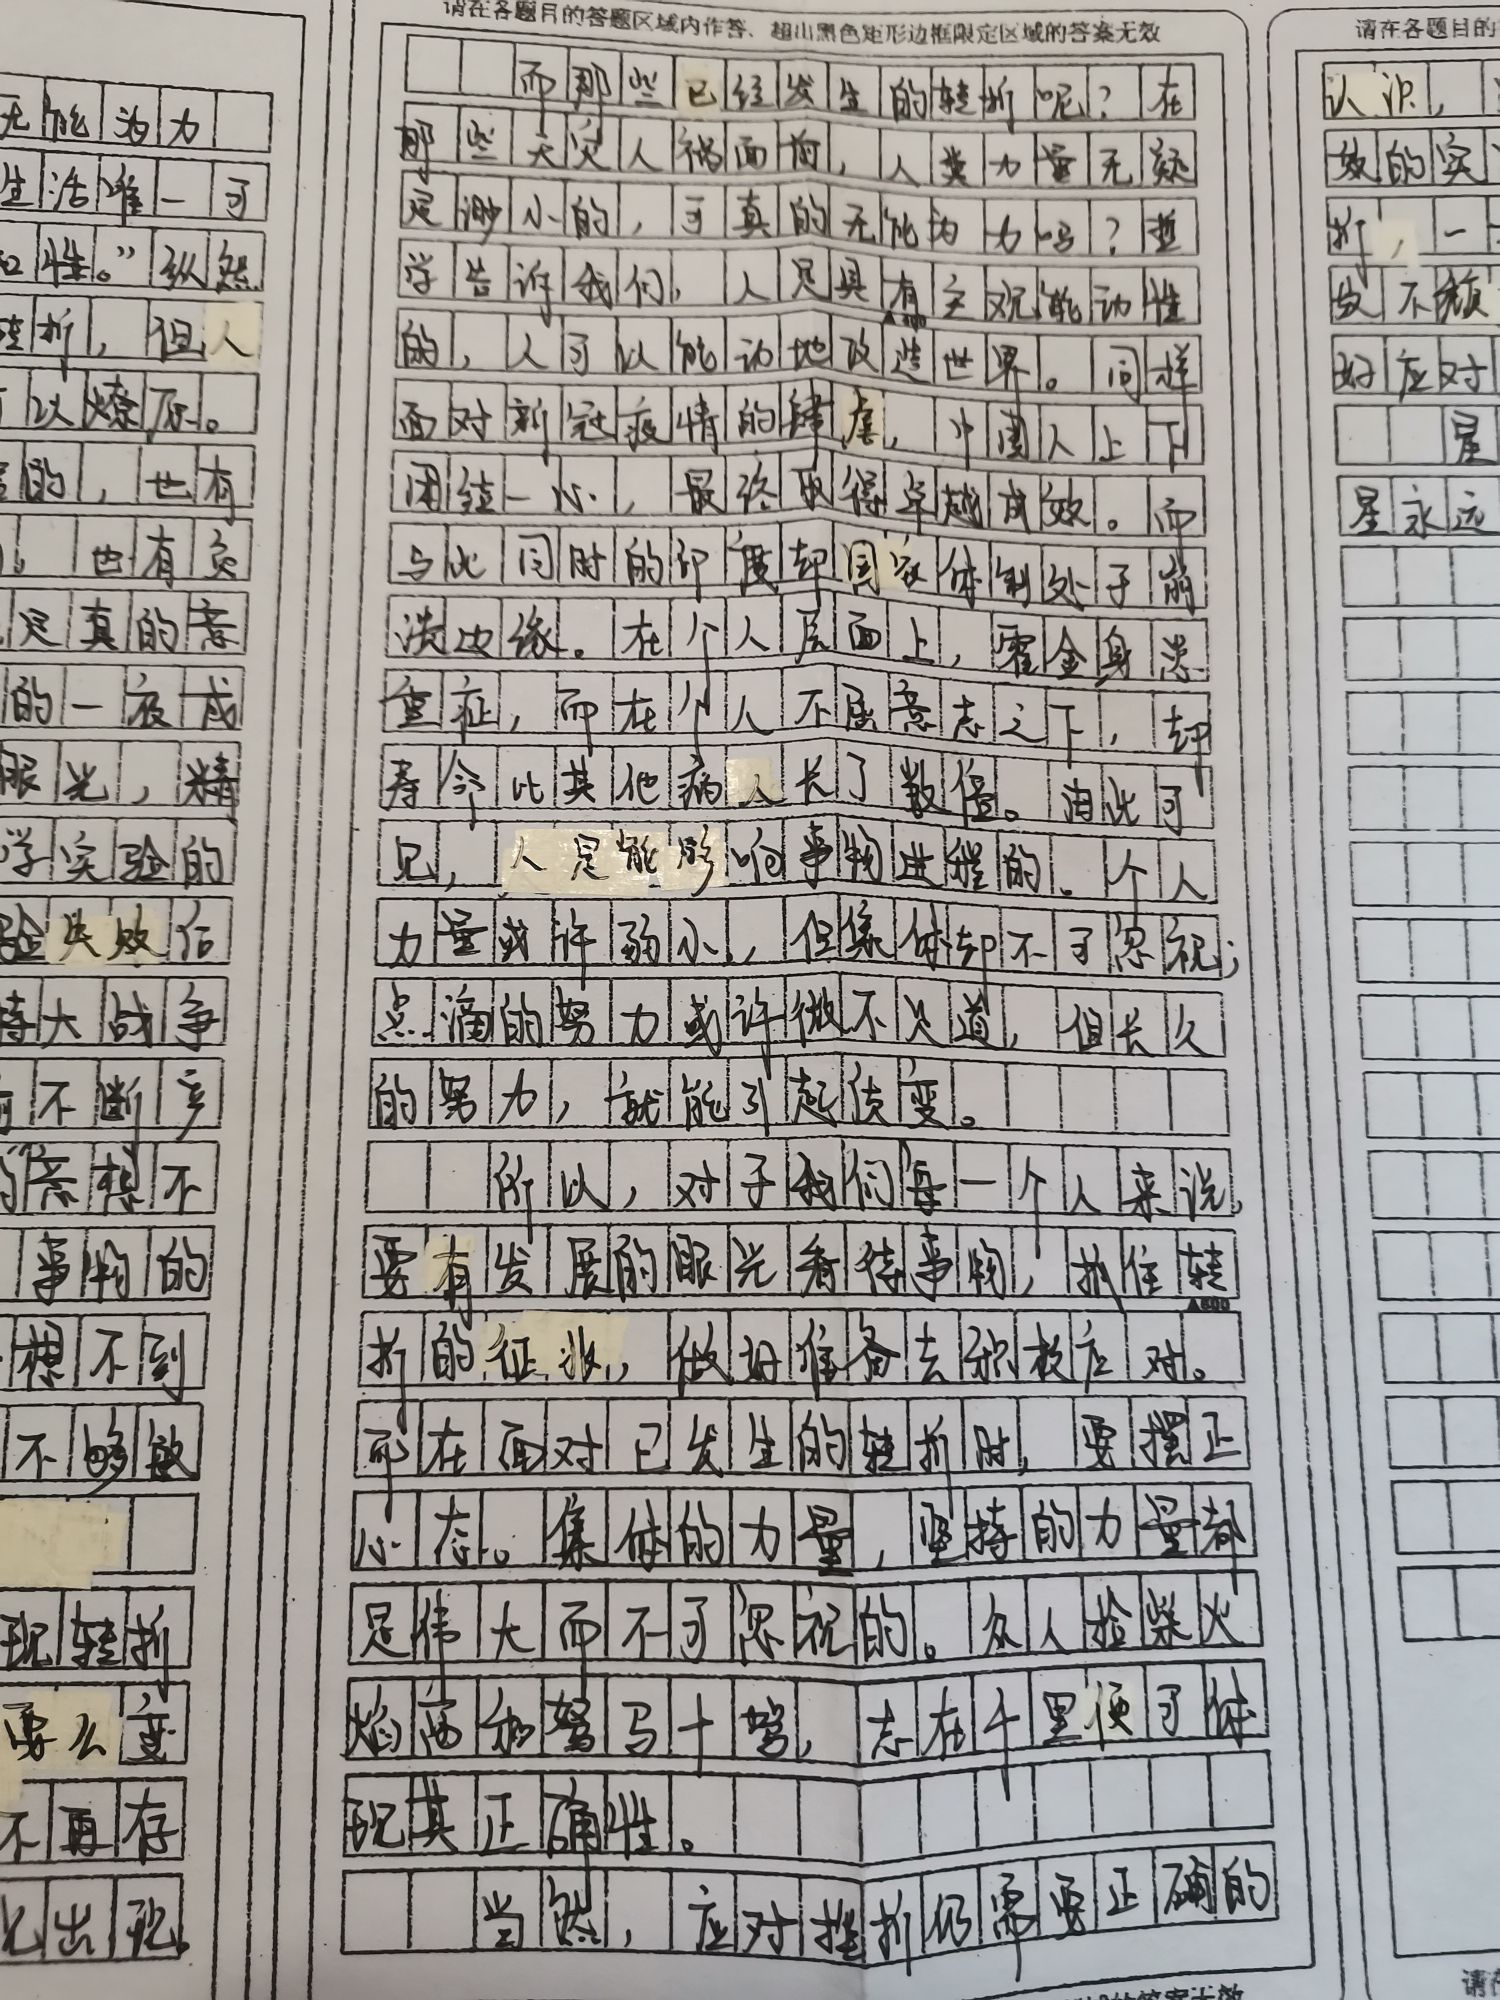 无能为力
生活唯一可
性。”纵然
转折，但人
可以燎原。
的，也有
也有负
是真的意
的一夜成
眼光，精
学实验的
验失败后
持大战争
不断变
意想不
事物的
想不到
不够敏
现转折
要么变
不再存
出现。
请在各题目的答题区域内作答，超出黑色矩形边框限定区域的答案无效
而那些已经发生的转折呢？在
那些天灾人祸面前，人类力量无疑
是渺小的，可真的无能为力吗？哲
学告诉我们，人是具有主观能动性
的，人可以能动地改造世界。同样
面对新冠疫情的肆虐，中国人上下
团结一心，最终取得卓越成效。而
与此同时的印度却国家体制处于崩
溃边缘。在个人层面上，霍金身患
重症，而在个人不屈意志之下，却
寿命比其他病人长了数倍。由此可
见，人是能影响事物进程的。个人
力量或许弱小，但集体却不可忽视；
点滴的努力或许微不足道，但长久
的努力，就能引起质变。
所以，对于我们每一个人来说，
要有发展的眼光看待事物，抓住转
▲600
折的征兆，做好准备去积极应对。
而在面对已发生的转折时，要摆正
心态。集体的力量，坚持的力量都
是伟大而不可忽视的。众人捡柴火
焰高和驽马十驾，志在千里便可体
现其正确性。
当然，应对挫折仍需要正确的
请在各题目的
认识，
效的实
折，一
放不颓
好应对
星
星永远